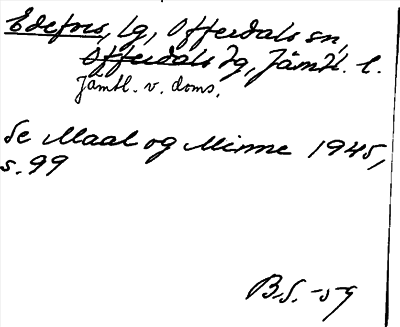 Edefors, lg, Offerdals sn,
Offerdals tg, Jämtl. l.
Jämtl. v. doms.
Se Maal og Minne 1945,
s. 99
B.S. -59